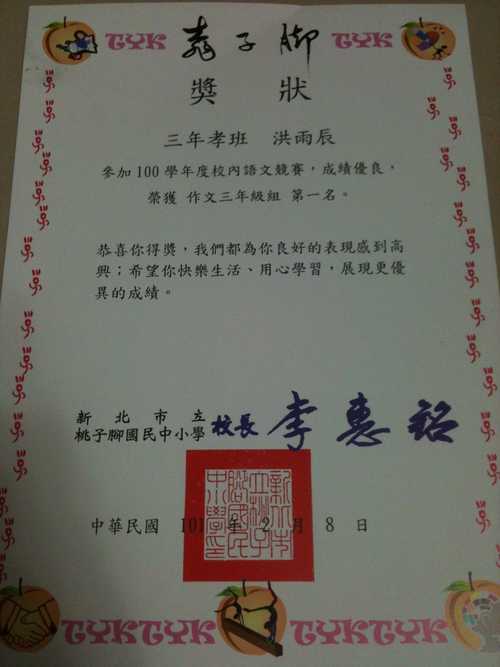 TYK 桃子腳 TYK
獎狀
三年孝班 洪雨辰
參加100學年度校內語文競賽，成績優良，
榮獲 作文三年級組 第一名。
恭喜你得獎，我們都為你良好的表現感到高
興；希望你快樂生活、用心學習，展現更優
異的成績。
新北市立
桃子腳國民中小學 校長 李惠銘
新北市立桃子腳國民中小學印
中華民國 101 年 2 月 8 日
TYKTYK TYKTYK